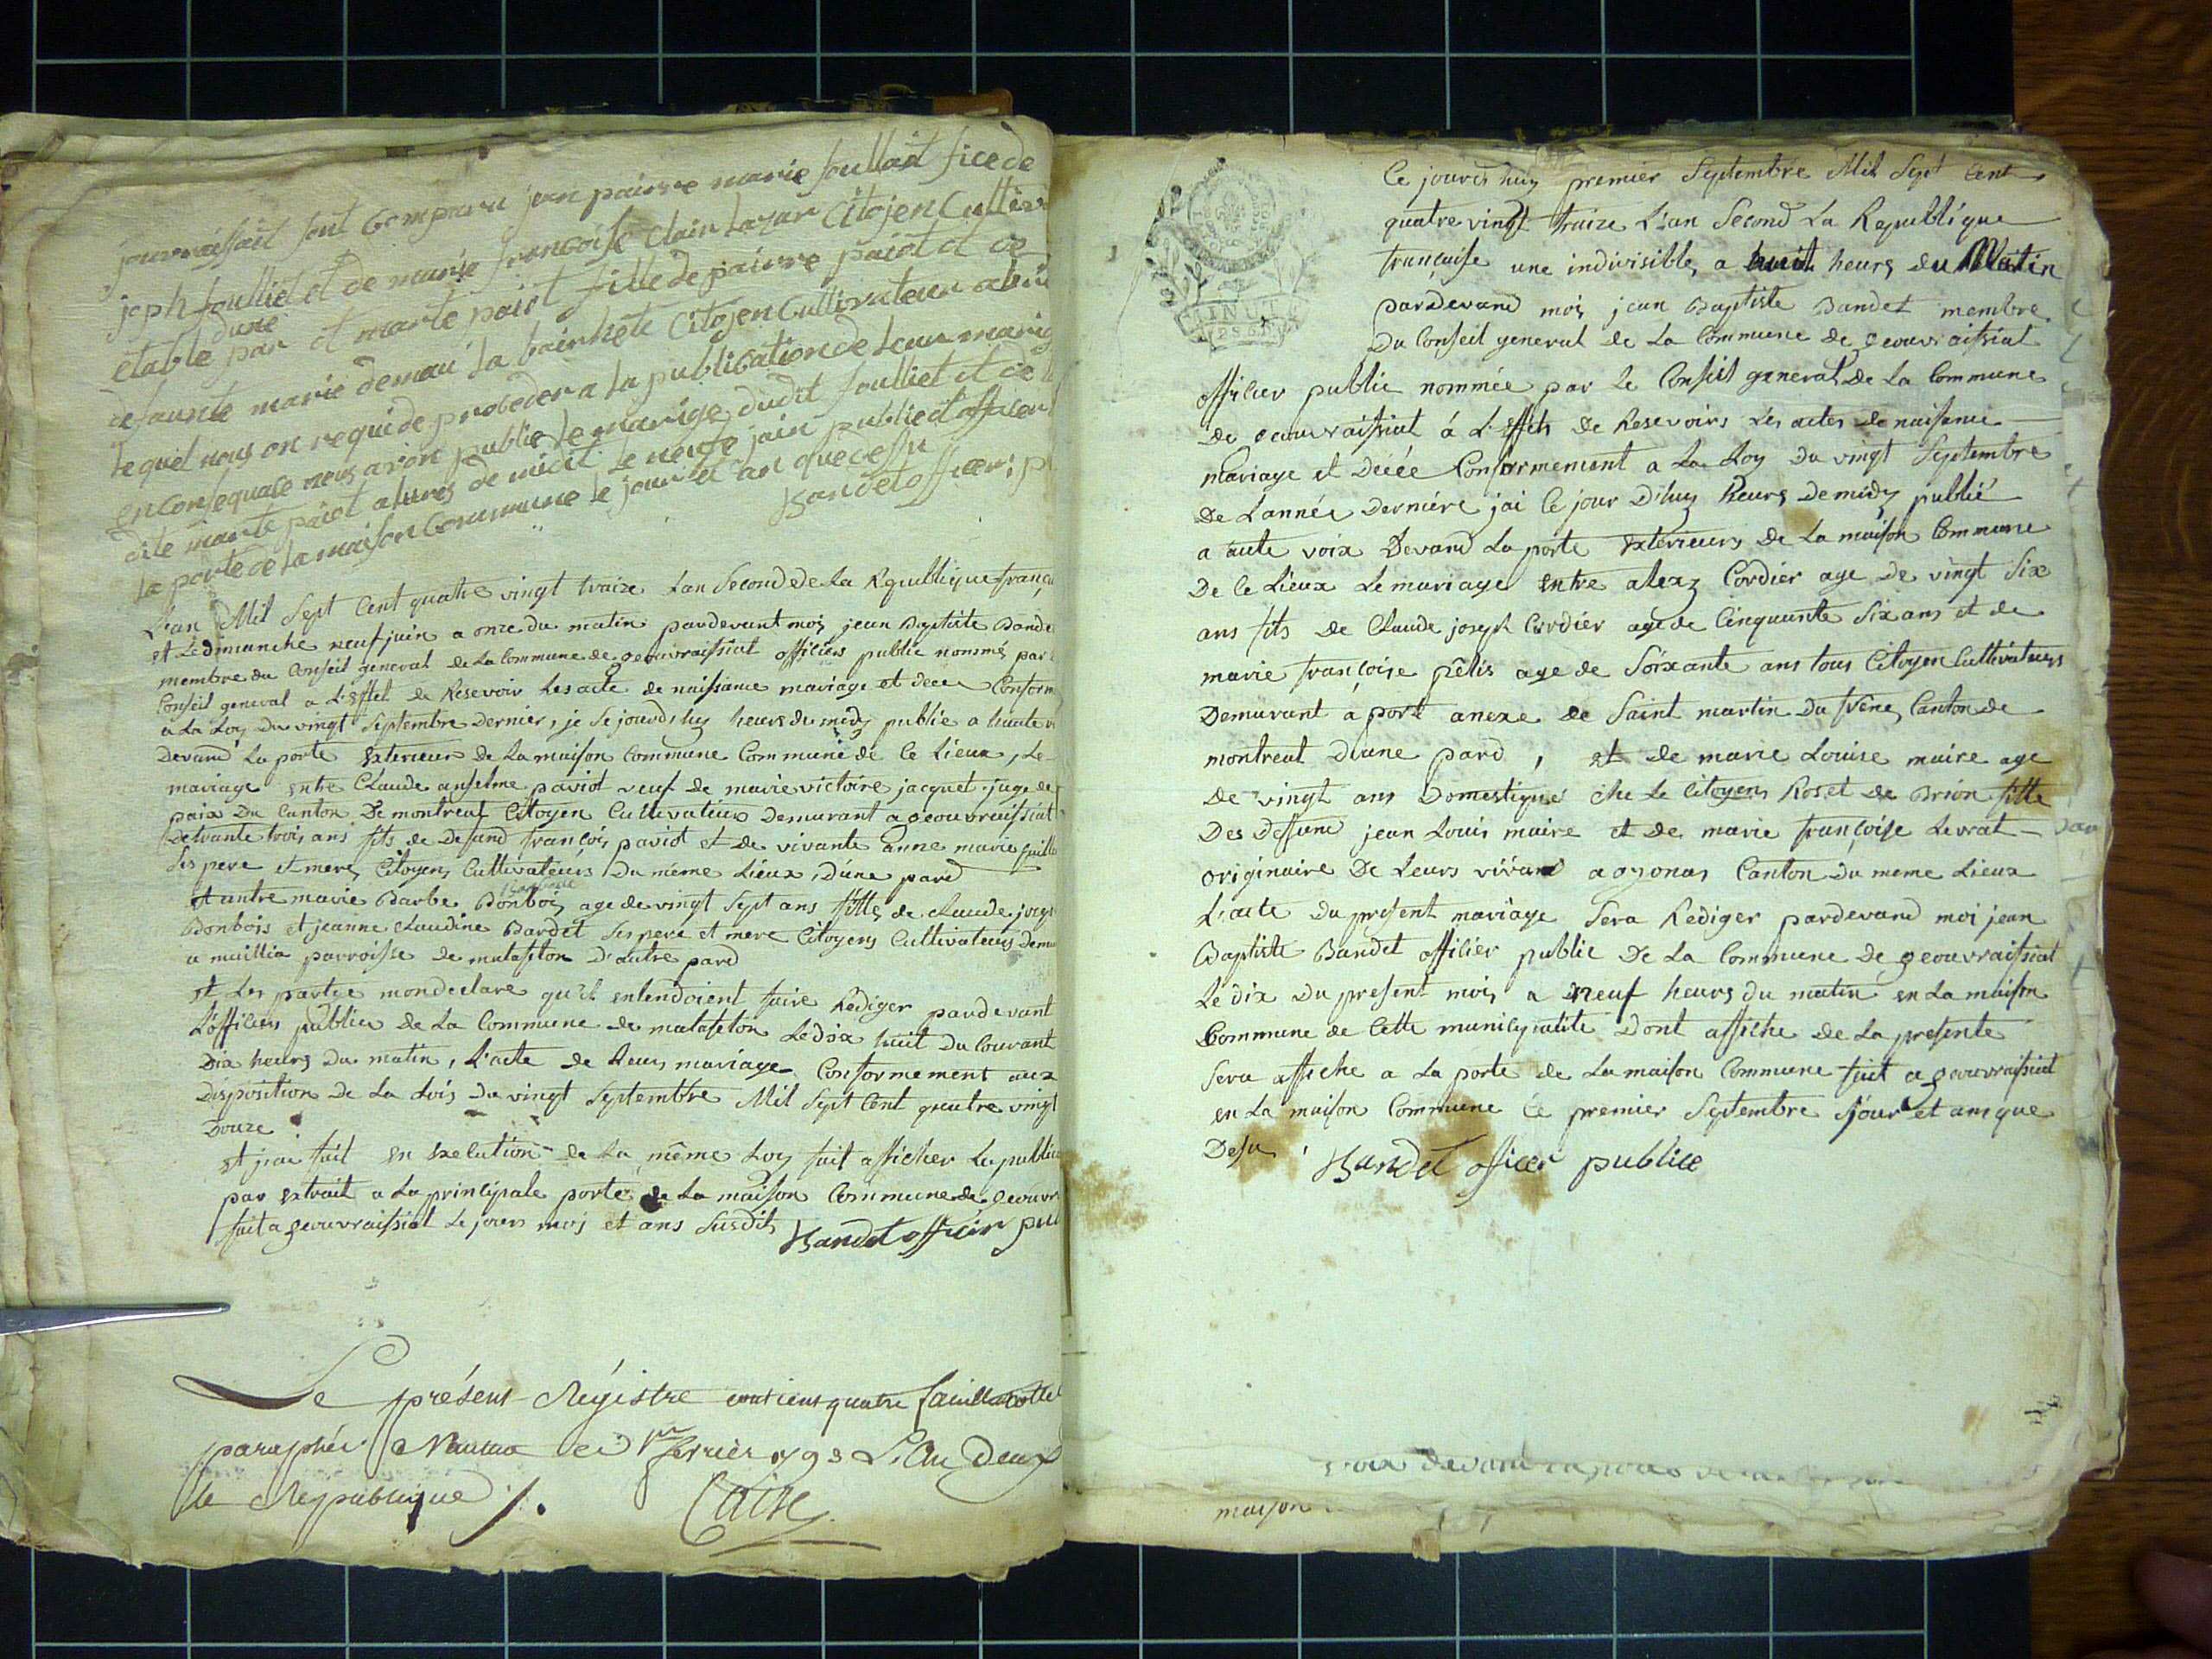 jouvraissait sont Comparu jan pairre marie soullait fice de
jeph soulliet et de marie francoise Clair Lazar Citojen Cultiv
etable dune par et marte paiot fille de pairre paiot et de
defaunte marie demau la bainhete Citojen Cultivateur
le quel nous on requi de proceder a la publication de leur mariage
en consequace nous avon publie le mariage dudit soulliet et de la
dite marte paiot a heures de midit le neufe juin publie
la porte de la maison Commune le jour et an que dessu
Bandet officier p
L'an Mil Sept Cent quatre vingt traize Lan Second de la Republique françai
et Le dimanche neuf juin a onze du matin pardevant moy jean Baptiste Bande
membre du Conseil general de la Commune de geouvraissiat officiers public nommé par
Conseil general a L'effet de Resevoir Les acte de naissance mariage et decé Conform
a La Loy du vingt Septembre dernier, je Se jourd'huy heurs de midy publie a haute v
devand La porte Exterieur de La maison Commune Commune de Ce Lieux, Le
mariage entre Claude anselme paviot veuf de marie victoire jacquet juge de
paix Du Canton De montreal Citoyen Cultivatieur Demurant a geouvraissiat
de trante trois ans fils de Defund françois paviot et de vivante anne marie guille
Ses pere et mere Citoyens Cultivateurs Du même Lieux, D'une pard
et autre marie Barbe Bonbois age de vingt Sept ans fille de claude josep
Bonbois et jeanne claudine Bardet Ses pere et mere Citoyens Cultivateurs Demu
a maillia parroisse de matafelon D'autre pard
et Les partye mondeclare qu'il entendoient faire Rediger pardevant
L'officiers publics de La Commune de matafelon Le dix huit Du Courant
Dix heurs Du matin, L'acte de Leurs mariage Conformement aux
Disposition De La Lois Du vingt Septembre Mil Sept Cent quatre vingt
Douze
et j'ai fait en Execution de La même Loy fait afficher La public
par Extrait a La principale porte de La maison Commune de geouvr
fait a geouvraissiat Le jours mois et ans Susdits Bandet officier pu
Le présent Régistre contient quatre feuille cotte
paraphée a Nantua le 1er fevrier 1793 L'an Deux
de la Republique ./.
Ce jourd'huy premier Septembre Mil Sept Cent
quatre vingt traize L'an Second La Republique
française une indivisible, a huit heurs du Matin
pardevand moy jean Baptiste Bandet membre
Du Conseil general de La Commune de geouvraissiat
officier public nommée par Le Conseil general De La Commune
de geouvraissiat á L'Effets de Resevoirs Les actes de naissance
mariage et Décée Conformement a La Loy Du vingt Septembre
De L'année Dernière jai Ce jour D'huy heurs De midy publié
a aute voix Devand La porte Exterieurs De La maison Commune
De Ce Lieux Le mariage entre alexz Cordier age de vingt Six
ans fils de Claude joseph Cordier age de Cinquante Six ans et de
marie françoise pêlis age de Soixante ans tous Citoyen Cultivateurs
Demurant á port anexe de Saint martin Du frêne, Canton de
montreal D'une pard, et de marie Louise maire age
De vingt ans Domestique che Le Citoyens Roset de Brion fille
Des Deffund jean Louis maire et de marie françoise Levrat
originaire De Leurs vivand a oyonas Canton du meme Lieux
L'acte Du present mariage Sera Rediger pardevand moi jean
Baptiste Bandet officier public De La Commune De geouvraissiat
Le dix Du present mois a neuf heurs du matin en La maison
Commune de Cette municipalité Dont affiche de La presente
Sera affiche a La porte de La maison Commune fait a geouvraissiat
en La maison Commune Ce premier Septembre jour et ans que
Desu Bandet officer publice
maison